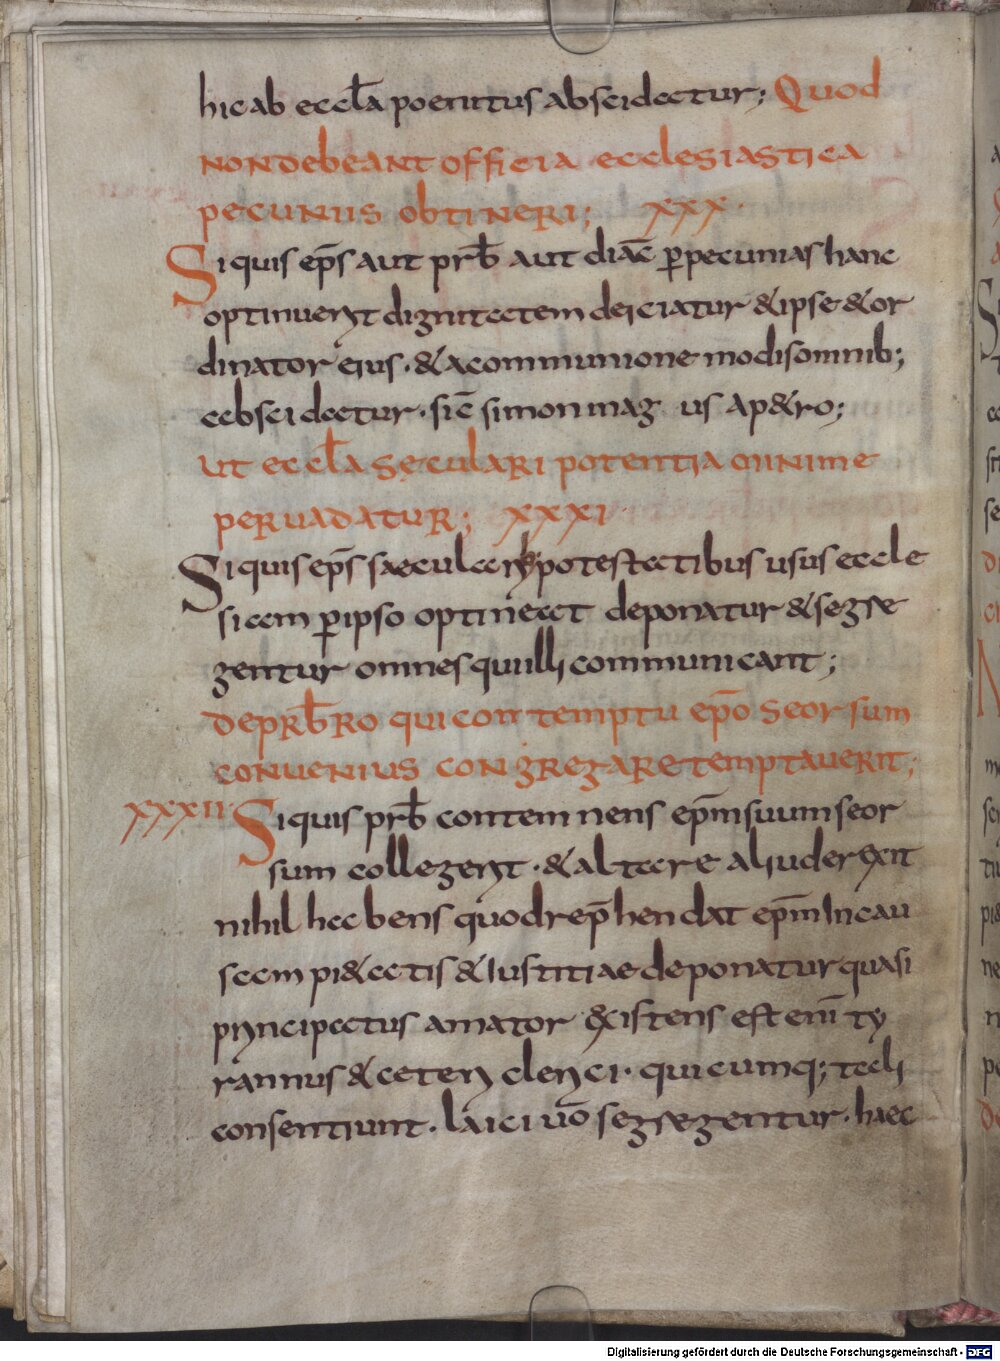 hic ab eccl̄a poenitus abscidatur; Quod
non debeant officia ecclesiastica
pecuniis obtineri; xxx·
Si quis ep̄s aut prb̄ aut diac̄ p̱ pecunias hanc
optinuerit dignitatem deiciatur & ipse & or
dinator eius · & a communione modis omnib;
abscidatur · sic̄ simon mag us a p&ro;
ut eccl̄a seculari potentia minime
peruadatur; xxxi·
Si quis ep̄s saecularib; potestatibus usus eccle
siam p̱ ipso optineat deponatur & segre
gentur omnes qui illi communicant;
de prb̄ro qui contemptu ep̄o seorsum
conuenius congregare temptauerit;
xxxii· Si quis prb̄ contemnens ep̄m suum seor
sum collegerit · & altare aliud erexit
nihil habens quo drep̄hendat ep̄m in cau
sa pi&atis & iustitiae deponatur quasi
principatus amator existens est eni̅ ty
rannus & ceteri clerici · quicumq; tali
consentiunt · laici uō segregentur · haec
Digitalisierung gefördert durch die Deutsche Forschungsgemeinschaft - DFG